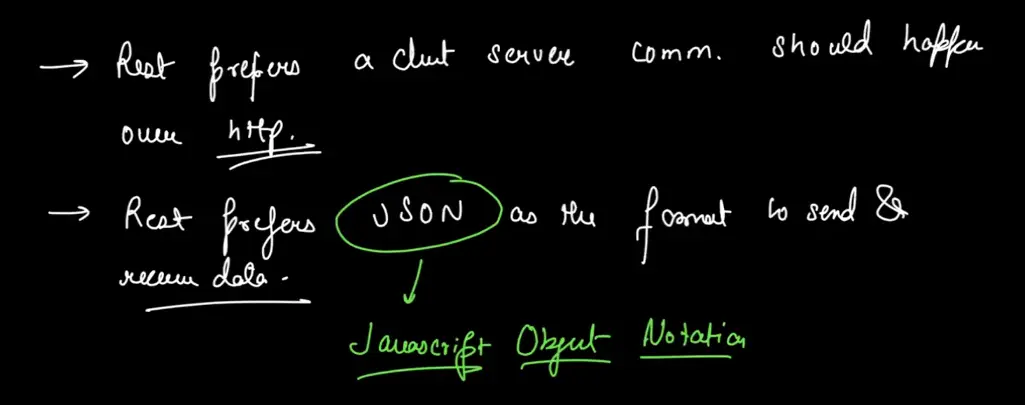 → Rest prefers a client server comm. should happen
over http.
→ Rest prefers JSON as the format to send &
receive data.
Javascript Object Notation